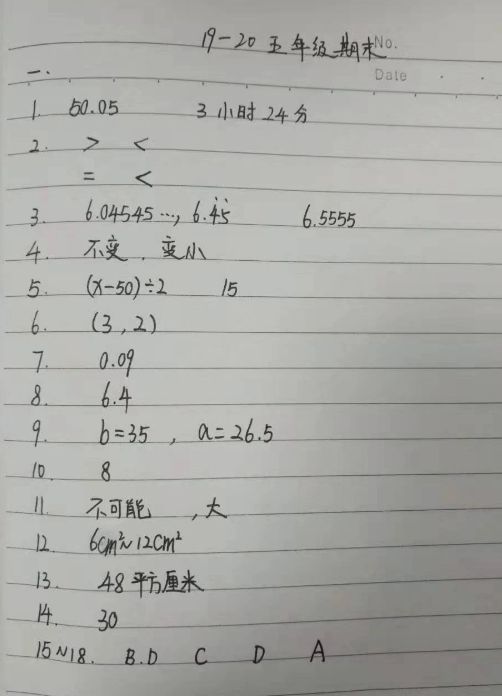 19-20 五年级期末
No.
Date
一.
1. 50.05 3小时24分
2. > <
= <
3. 6.04545…, 6.4̇5̇ 6.5555
4. 不变. 变小
5. (x-50)÷2 15
6. (3,2)
7. 0.09
8. 6.4
9. b=35, a=26.5
10. 8
11. 不可能, 大
12. 6cm²~12cm²
13. 48平方厘米
14. 30
15~18. B.D C D A